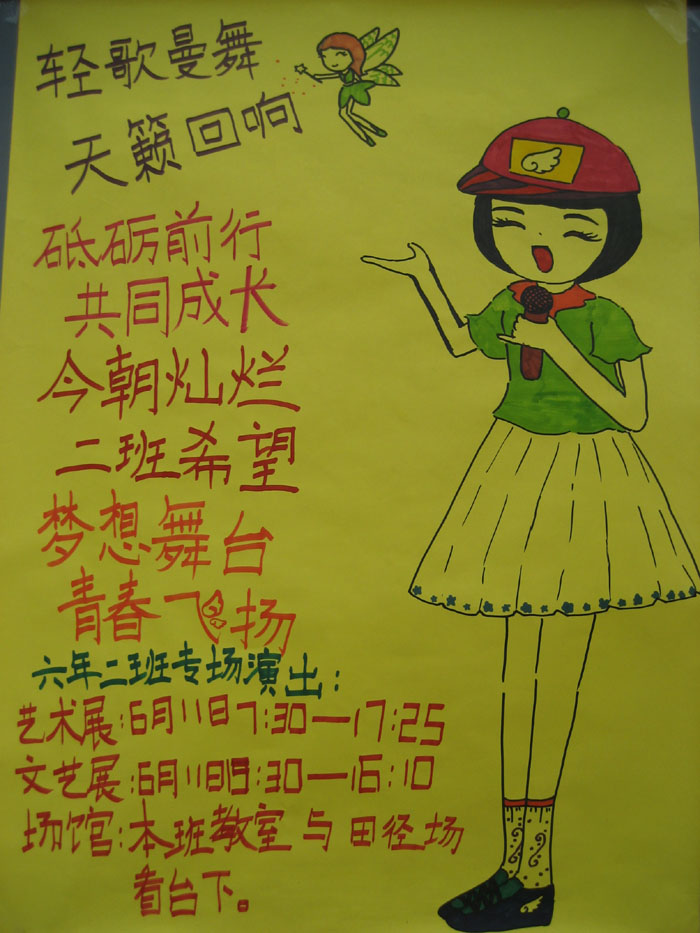 轻歌曼舞
天籁回响
砥砺前行
共同成长
今朝灿烂
二班希望
梦想舞台
青春飞扬
六年二班专场演出:
艺术展:6月11日7:30—17:25
文艺展:6月11日15:30—16:10
场馆:本班教室与田径场
看台下。